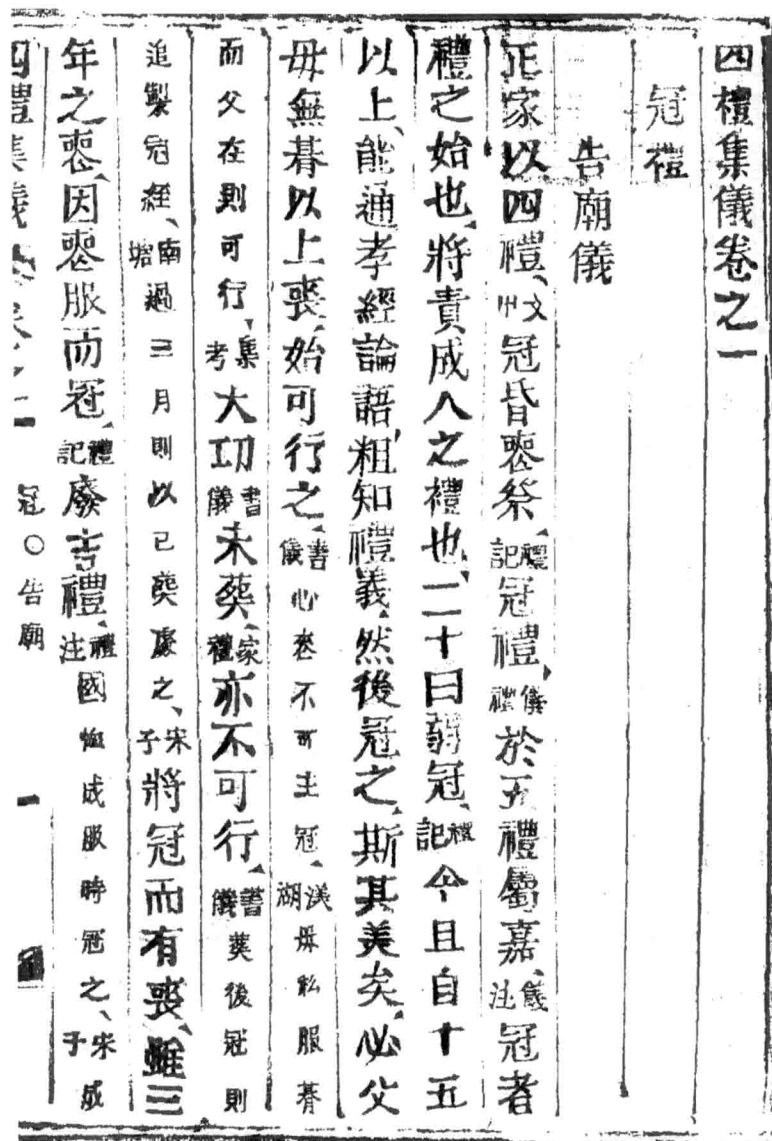 四禮集儀卷之一
冠禮
告廟儀
正家以四禮、文中冠昏喪祭、禮記冠禮、儀禮於五禮屬嘉、儀注冠者
禮之始也、將責成人之禮也、二十曰弱冠、禮記今且自十五
以上、能通孝經論語、粗知禮義、然後冠之、斯其美矣、必父
母無朞以上喪、始可行之、書儀心喪不可主冠、渼湖母私服朞
而父在則可行、集考大功書儀未葬、家禮亦不可行、書儀葬後冠則
追製冠絰、南塘過三月則以已葬處之、宋子將冠而有喪、雖三
年之喪、因喪服而冠、禮記廢吉禮、禮注國恤成服時冠之、宋子成
四禮集儀卷之一 冠○告廟 一